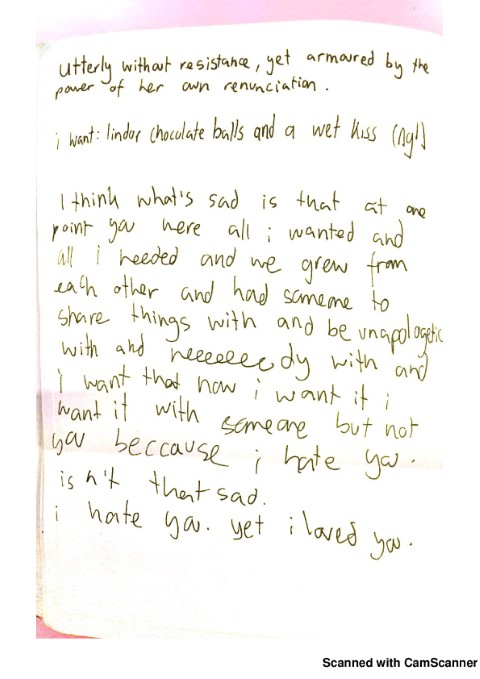 utterly without resistance, yet armoured by the
power of her own renunciation.
i want: lindor chocolate balls and a wet kiss (ngl)
I think what's sad is that at one
point you were all i wanted and
all i needed and we grew from
each other and had someone to
share things with and be unapologetic
with and neeeeeedy with and
i want that now i want it i
want it with someone but not
you beccause i hate you.
isn't that sad.
i hate you. yet i loved you.
Scanned with CamScanner